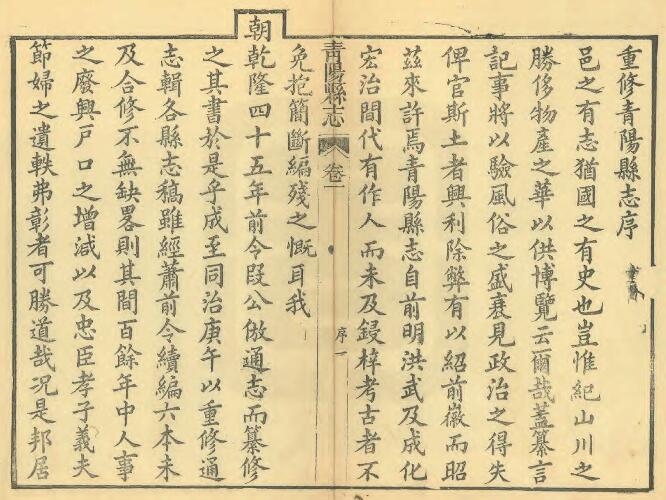 重修青陽縣志序
邑之有志猶國之有史也豈惟紀山川之
勝侈物產之華以供博覽云爾哉蓋纂言
記事將以驗風俗之盛衰見政治之得失
俾官斯土者興利除弊有以紹前徽而昭
茲來許焉青陽縣志自前明洪武及成化
宏治間代有作人而未及鋟梓考古者不
青陽縣志
卷一
序一
免抱簡斷編殘之慨耳我
朝乾隆四十五年前令段公倣通志而纂修
之其書於是乎成至同治庚午以重修通
志輯各縣志稿雖經蕭前令續編六本未
及合修不無缺畧則其間百餘年中人事
之廢興戶口之增減以及忠臣孝子義夫
節婦之遺軼弗彰者可勝道哉况是邦居